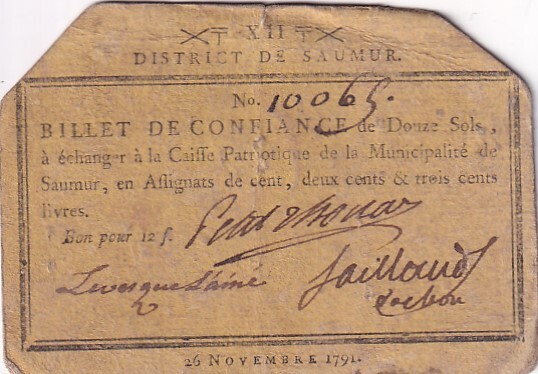 XII
DISTRICT DE SAUMUR.
No. 10065.
BILLET DE CONFIANCE de Douze Sols,
à échanger à la Caiſſe Patriotique de la Municipalité de
Saumur, en Aſſignats de cent, deux cents & trois cents
livres.
Bon pour 12 ſ.
Petit thouar
Levesque L'ainé
26 NOVEMBRE 1791.